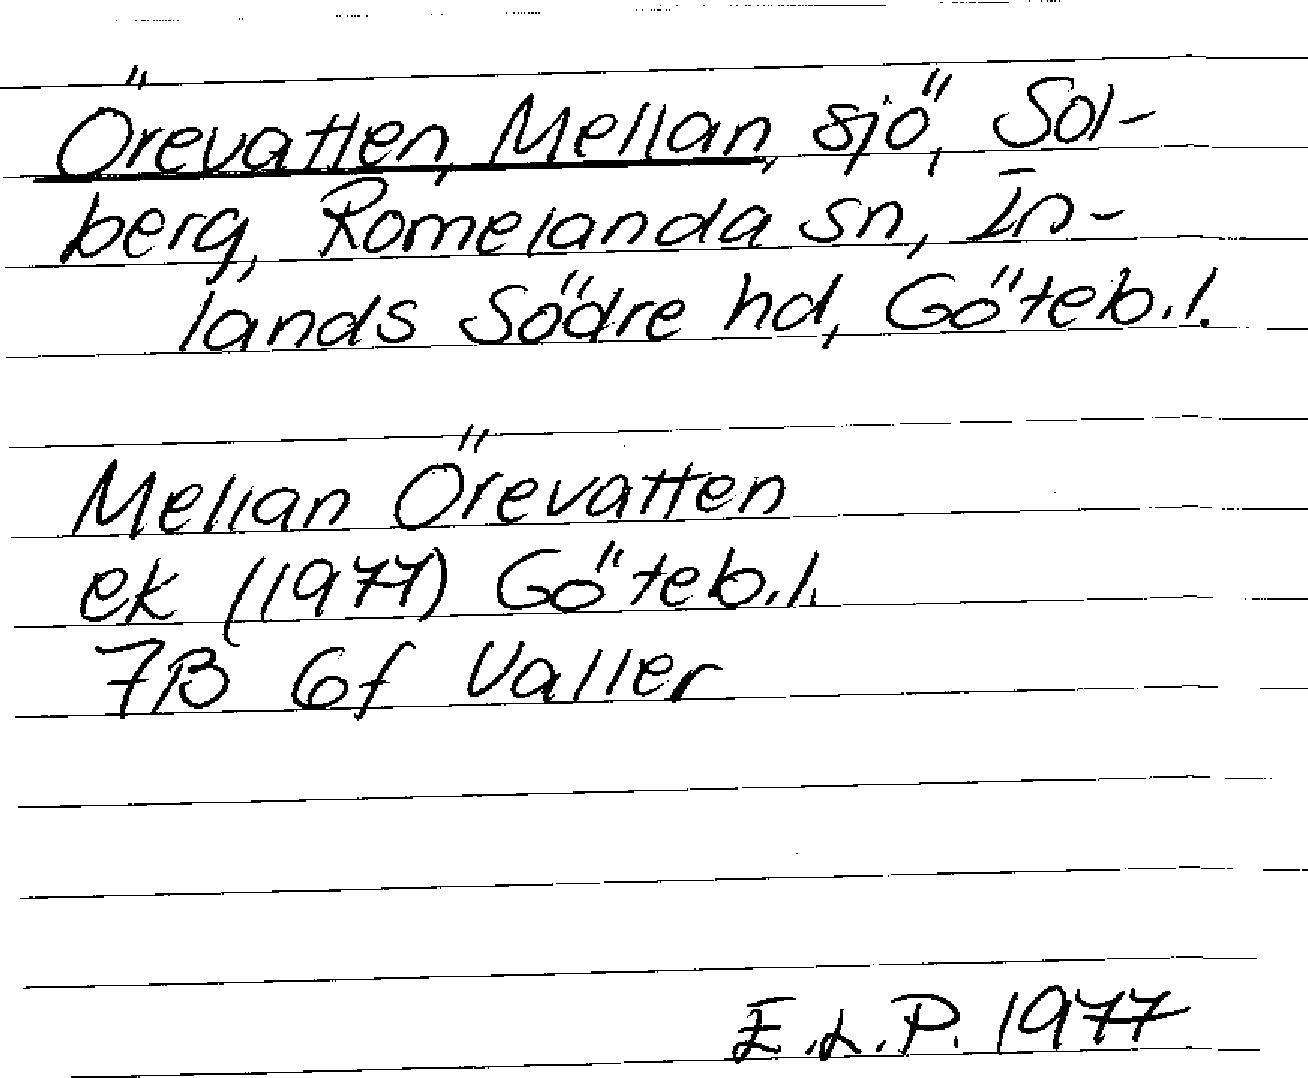 Örevatten, Mellan, sjö, Sol-
berg, Romelanda sn, In-
lands Södre hd, Göteb.l.
Mellan Örevatten
ek (1977) Göteb.l.
7B 6f Valler
E.L.P. 1977